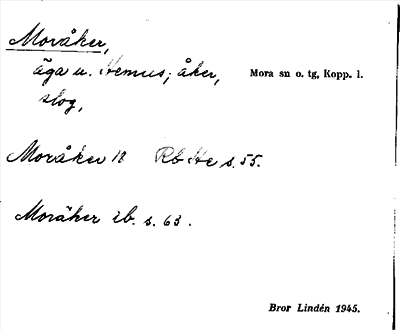 Moråker,
äga u. Hemus; åker,
slog,
Mora sn o. tg, Kopp. l.
Moråker 18 Rb He s. 55.
Moråker ib. s. 63.
Bror Lindén 1945.